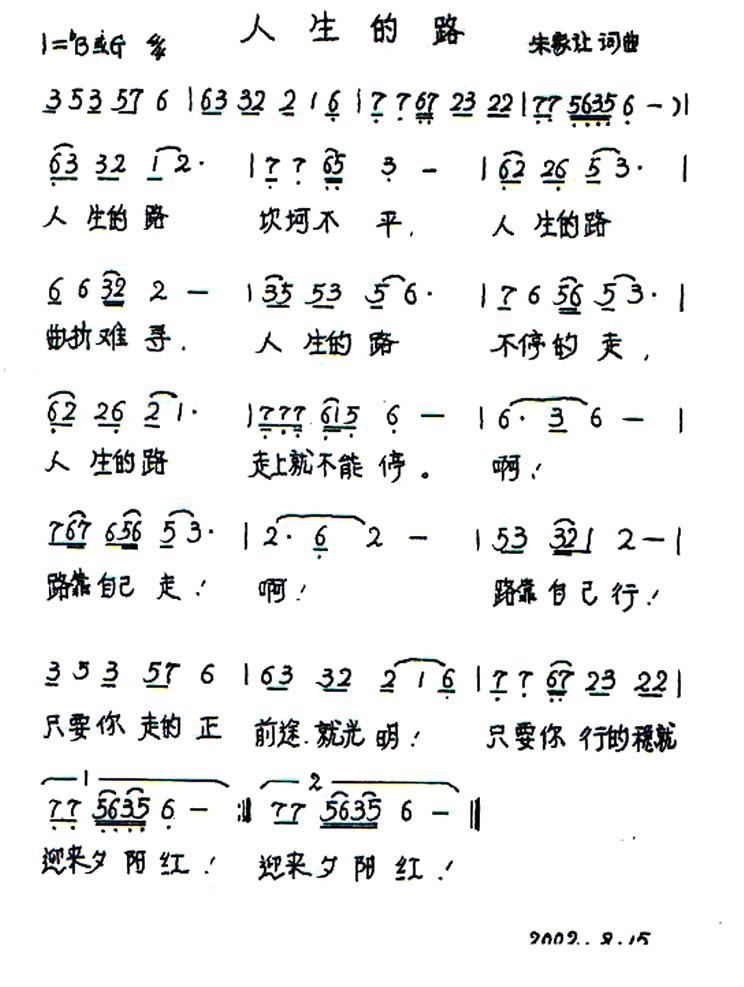 人生的路
1=♭B或G 4/4 朱家让 词曲
3 5 3 57 6 | 63 32 2 1 6 | 7 7 67 23 22 | 77 5635 6 - ) |
63 32 1 2· | 7 7 65 3 - | 62 26 5 3· |
人生的路 坎坷不平, 人生的路
6 6 32 2 - | 35 53 5 6· | 7 6 56 5 3· |
曲折难寻. 人生的路 不停的走,
62 26 2 1· | 777 615 6 - | 6· 3 6 - |
人生的路 走上就不能停。 啊!
767 656 5 3· | 2· 6 2 - | 53 321 2 - |
路靠自己走! 啊! 路靠自己行!
3 5 3 57 6 | 63 32 2 1 6 | 7 7 67 23 22 |
只要你走的正 前途.就光明! 只要你行的稳就
1 2
77 5635 6 - :|| 77 5635 6 - ||
迎来夕阳红! 迎来夕阳红!
2002.8.15